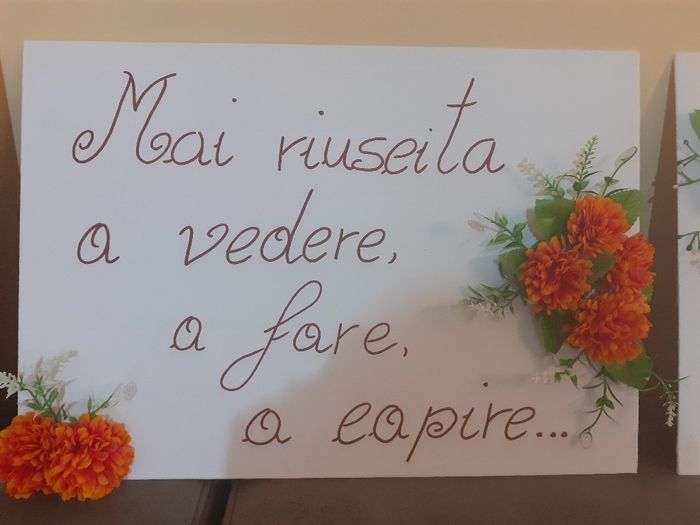 Mai riuscita
a vedere,
a fare,
a capire...